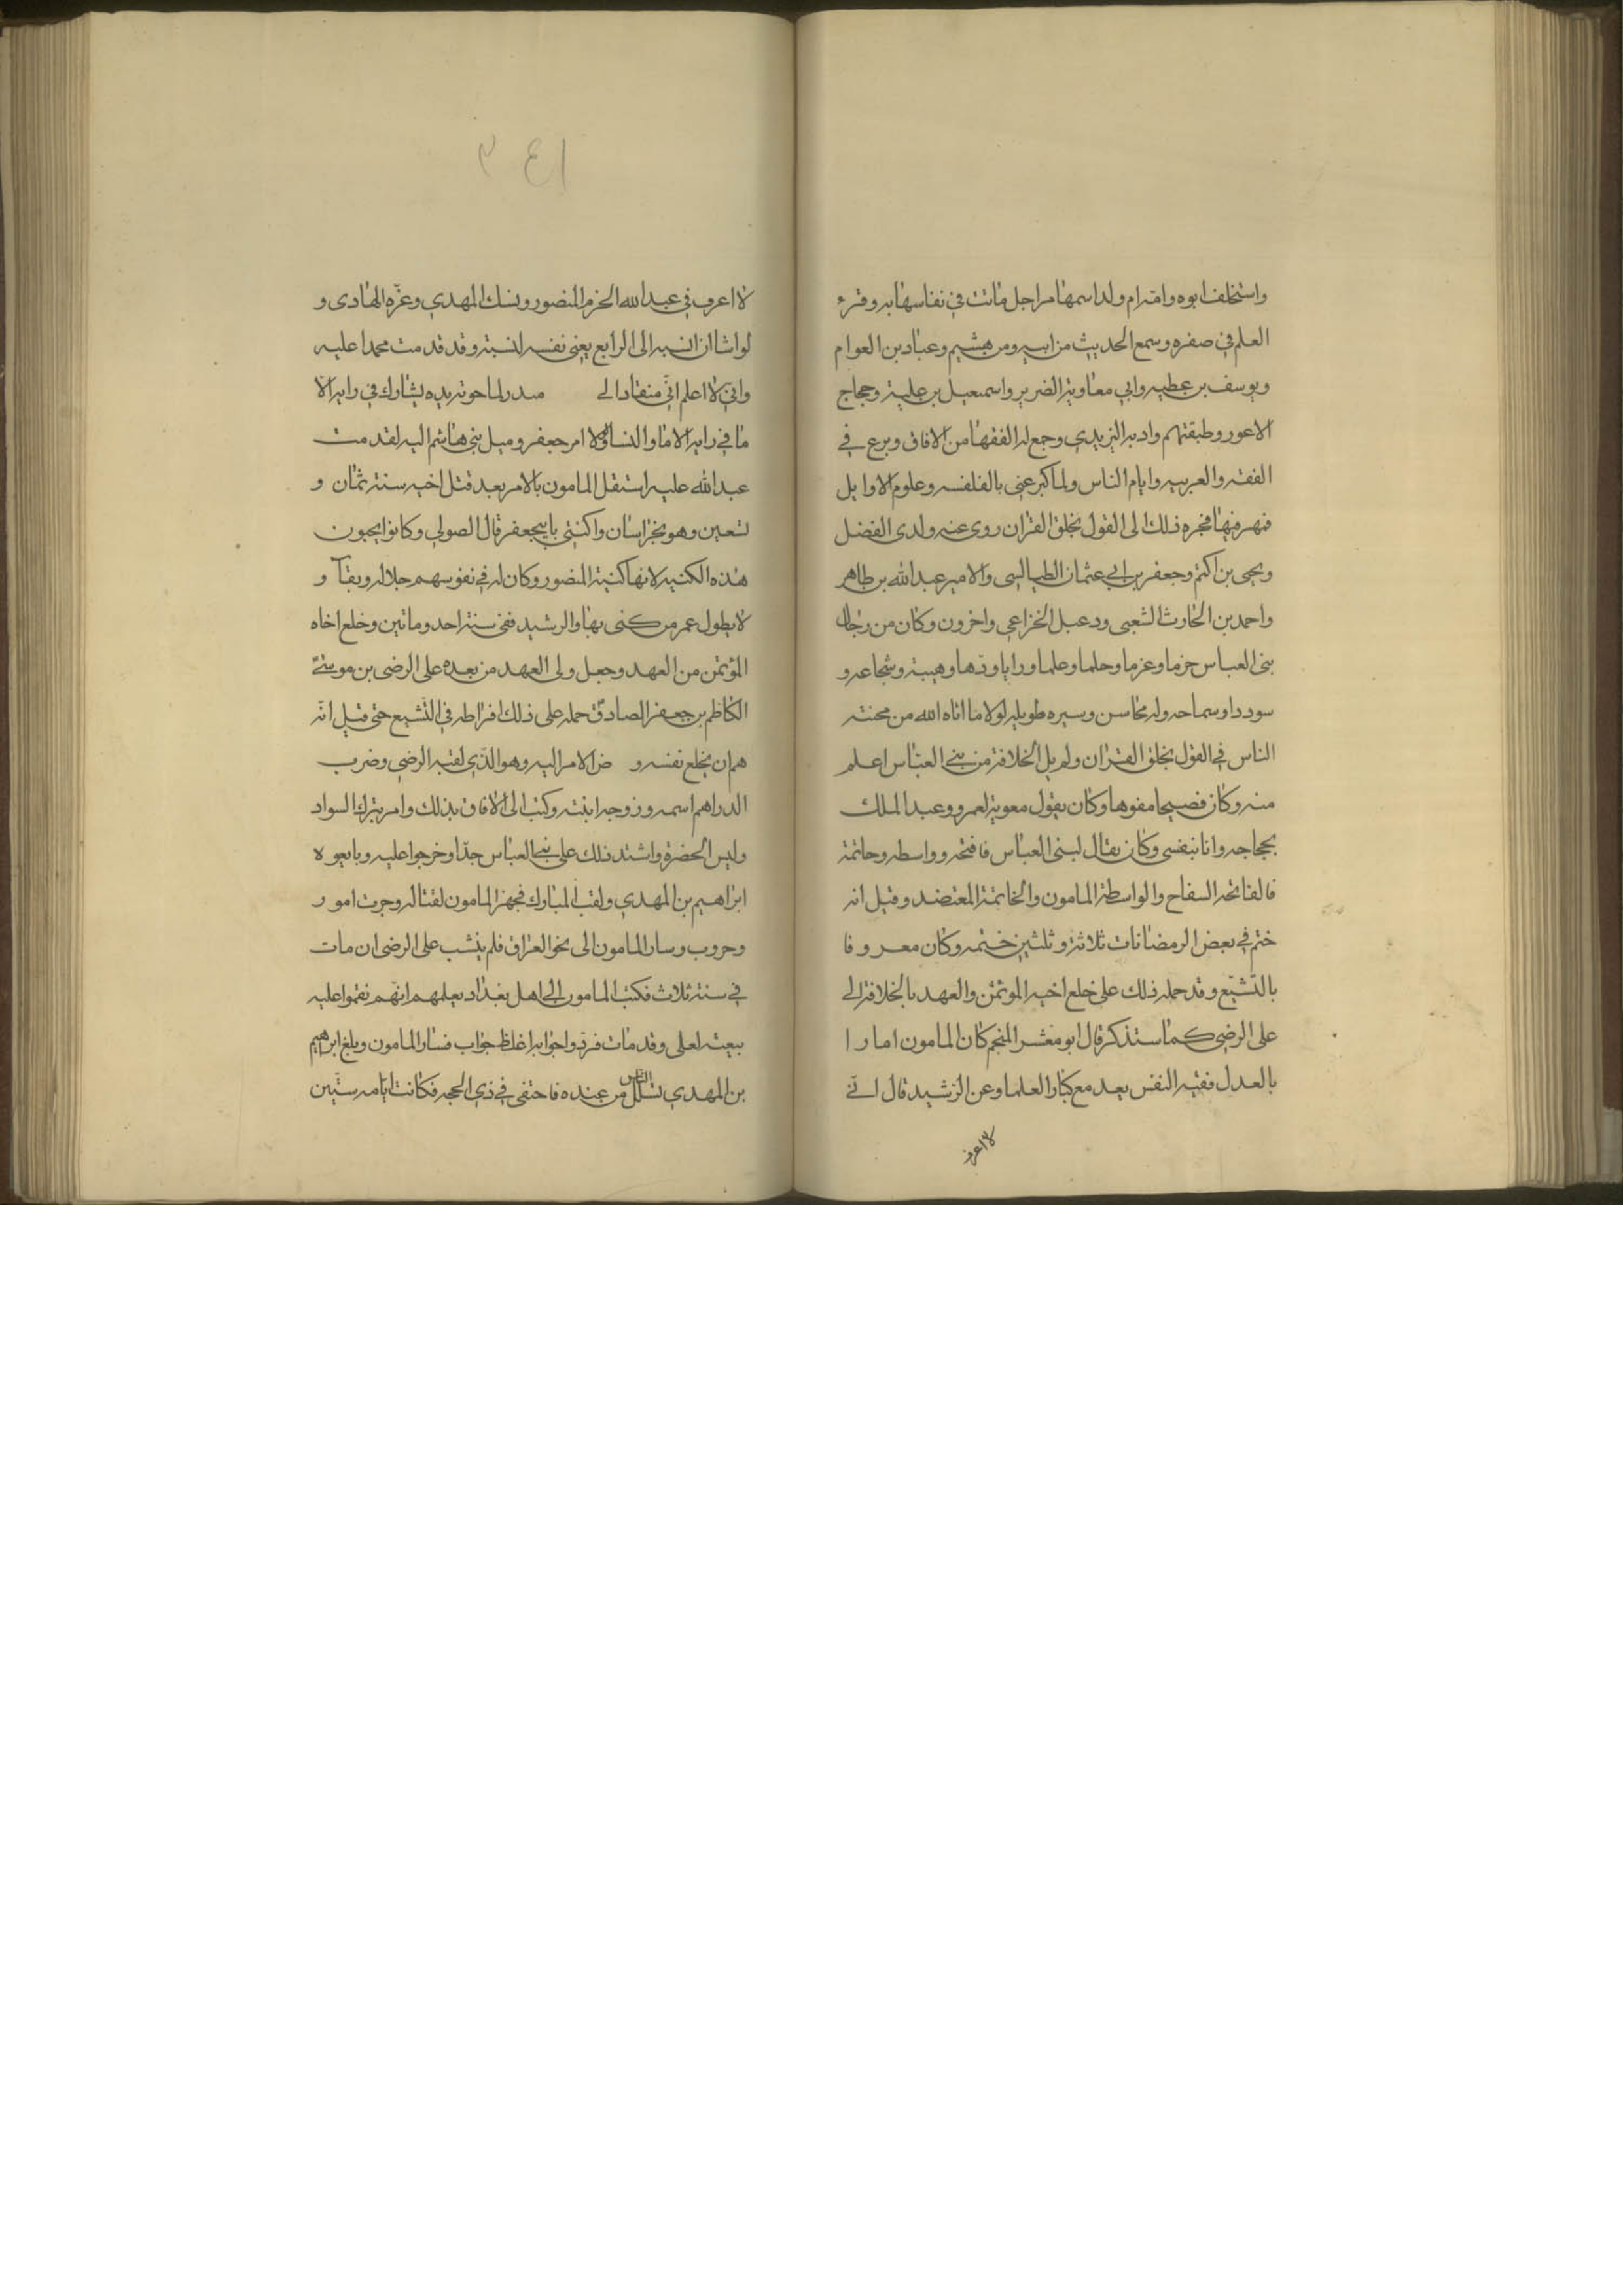 واستخلف ابوه وامه ام ولد اسمها مراجل ماتت في نفاسها به وقرء
العلم في صغره وسمع الحديث من ابيه ومن هشيم وعباد بن العوام
ويوسف بن عطيه وابي معاوية الضرير واسمعيل بن علية وحجاج
الاعور وطبقتهم وادبه اليزيدي وجمع له الفقها من الافاق وبرع في
الفقه والعربيه وايام الناس ولما كبر عنى بالفلفسه وعلوم الاوايل
فمهر فيها فجره ذلك الى القول بخلق القران روى عنه ولدى الفضل
ويحيى بن اكتم وجعفر بن ابي عثمان الطيالسى والامير عبد الله بن طاهر
واحمد بن الحارث الشعبى ودعبل الخزاعي واخرون وكان من رجال
بنى العباس حزما وعزما وحلما وعلما ورايا ودها وهيبة وشجاعه و
سوددا وسماحه وله محاسن وسيره طويله لولا ما اتاه الله من محنته
الناس في القول بخلق القران ولم يل الخلافة من بني العباس اعلم
منه وكان فصيحا مفوها وكان يقول معوية لعمرو وعبد الملك
بحجاجه وانا بنفسى وكان يقال لبنى العباس فافتحه وواسطه وخاتمة
فالفاتحه السفاح والواسطة المامون والخاتمة المعتضد وقيل انه
ختم في بعض الرمضانات ثلاثة وثلثين ختمه وكان معروفا
بالتشيع وقد حمله ذلك على خلع اخيه الموتمن والعهد بالخلافة الى
على الرضي كما ستذكر قال ابو معشر المنجم كان المامون امارا
بالعدل فقيه النفس يعد مع كبار العلما وعن الرشيد قال اني
لا اعرف
٣٤١
لا اعرف في عبد الله الحزم المنصور ونسك المهدي وعزه الهادى و
لواشا ان انسبه الى الرابع يعني نفسه لنسبته وقد قدمت محمدا عليه
واني لا اعلم اني منقاد الى لما حوته يده يشارك في رايه الا
ما في رايه الاما والنسا ولولا ام جعفر وميل بني هاشم اليه لقدمت
عبد الله عليه استقل المامون بالامر بعد قتل اخيه سنة ثمان و
تسعين وهو بخراسان واكتنى بابي جعفر قال الصولي وكانوا يحبون
هذه الكنيه لانها كنية المنصور وكان له في نفوسهم جلاله وبقآ و
لا يطول عمر من كنى بها والرشيد ففى سنة احد وماتين وخلع اخاه
المؤتمن من العهد وجعل ولى العهد من بعده على الرضى بن موسى
الكاظم بن جعفر الصادق حمله على ذلك افراطه في التشيع حتى قيل انه
هم ان يخلع نفسه و ض الامر اليه وهو الذي لقبه الرضي وضرب
الدراهم اسمه وزوجه ابنته وكتب الى الافاق بذلك وامر بترك السواد
ولبس الحضرة واشتد ذلك على بني العباس جدا وخرجوا عليه وبايعوه
ابراهيم بن المهدي ولقب المبارك فجهز المامون لقتاله وجرت امور
وحروب وسار المامون الى نحو العراق فلم ينشب على الرضى ان مات
في سنة ثلاث فكتب المامون الى اهل بغداد يعلمهم انهم نقموا عليه
ببيعته لعلى وقد مات فردوا جوابه اغلظ جواب فسار المامون وبلغ ابراهيم
بن المهدي تسلل الناس من عنده فاختفى في ذي الحجه فكانت ايامه سنتين